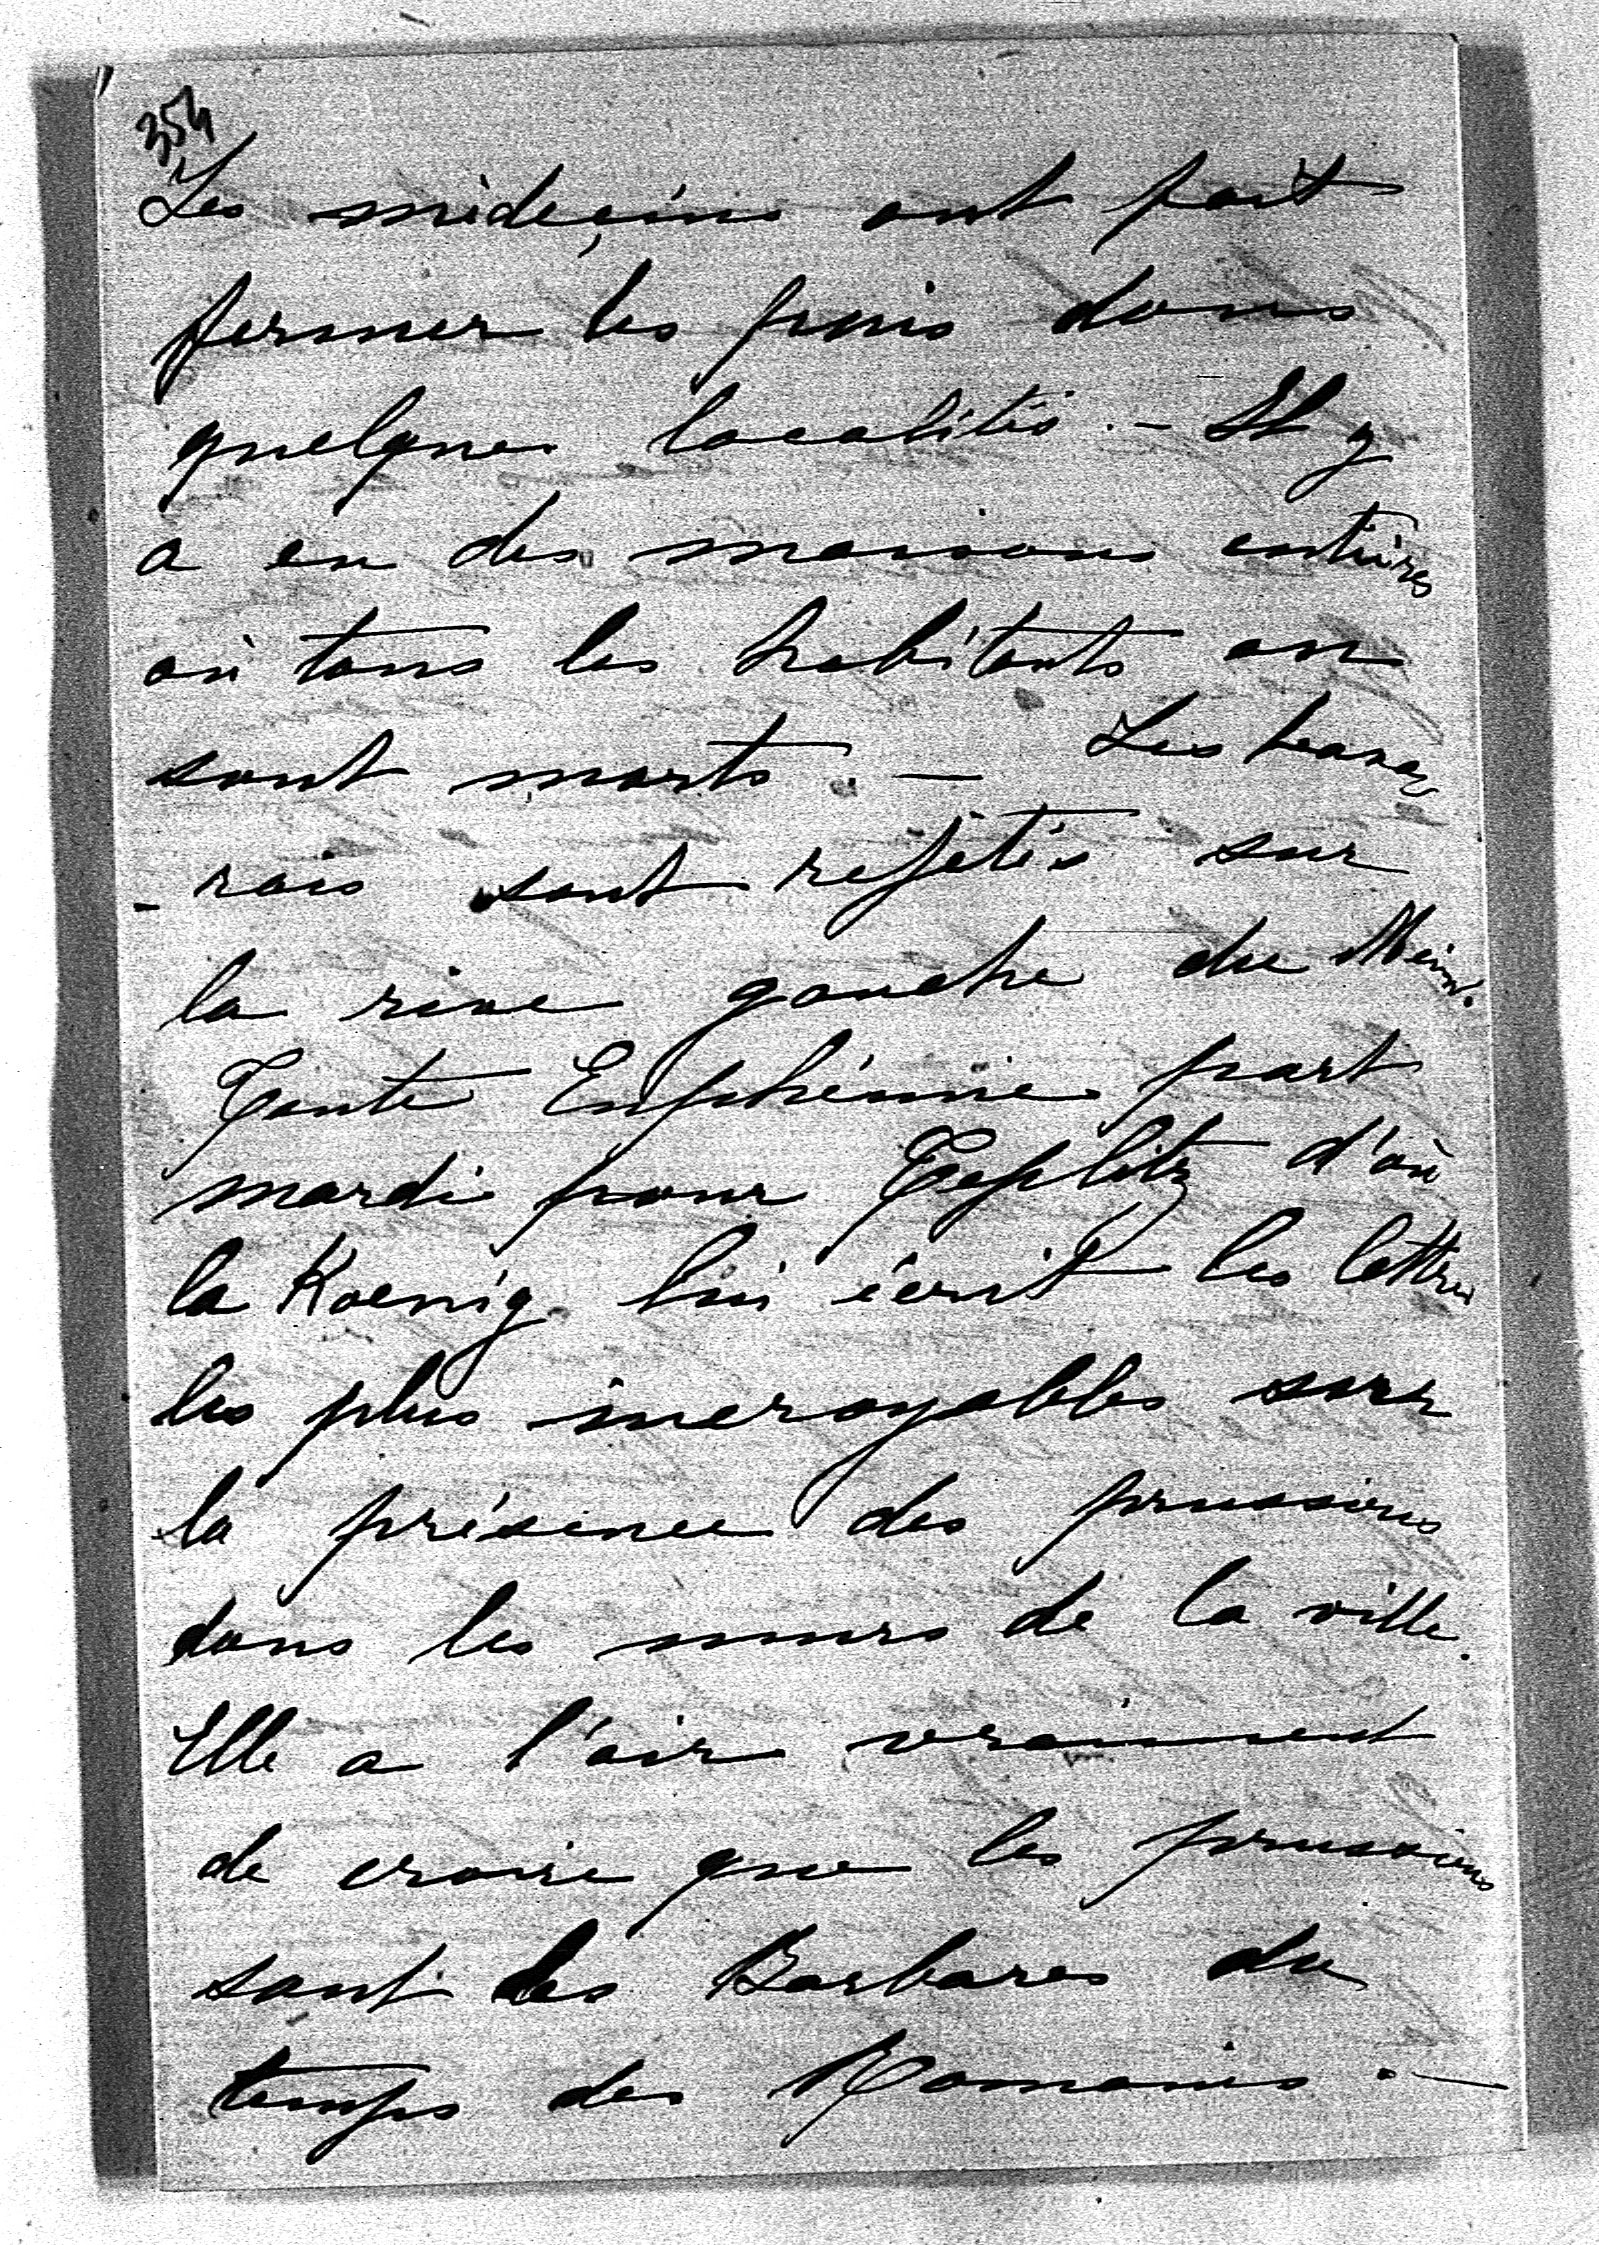 354
Les médeçins ont fait
fermer les puis dans
quelques localités. - Il y
a eu des maisons entières
où tous les habitants en
sont morts. — Les bava
- rois sont rejetés sur
la rive gauche du Mein.
Tante Euphémie part
mardi pour Teplitz d'où
la Koenig lui écrit les lettres
les plus incroyables sur
la présence des prussiens
dans les murs de la ville.
Elle a l'air vraiment
de croire que les prussiens
sont les Barbares du
temps des Romains. —